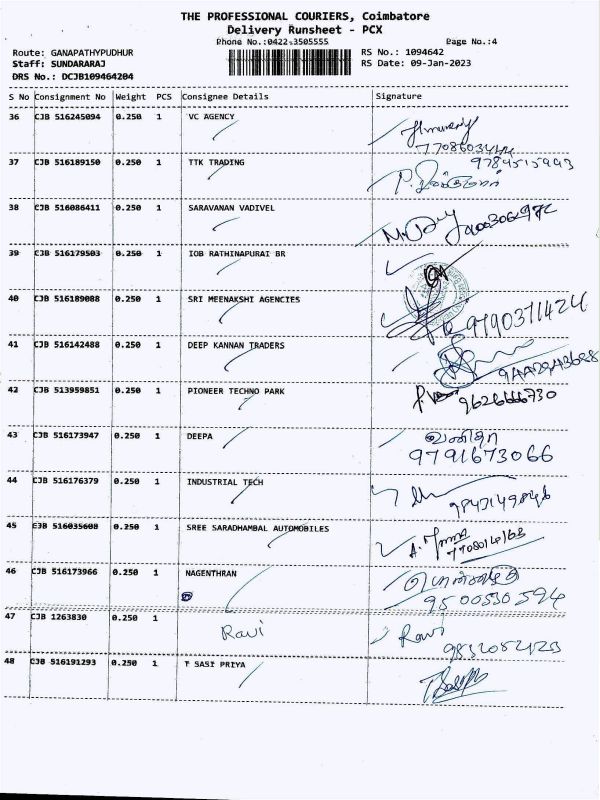 THE PROFESSIONAL COURIERS, Coimbatore
Delivery Runsheet - PCX
Phone No.:0422-3505555 Page No.:4
Route: GANAPATHYPUDHUR RS No.: 1094642
Staff: SUNDARARAJ RS Date: 09-Jan-2023
DRS No.: DCJB109464204
S No Consignment No Weight PCS Consignee Details Signature
36 CJB 516245094 0.250 1 VC AGENCY
37 CJB 516189150 0.250 1 TTK TRADING
38 CJB 516086411 0.250 1 SARAVANAN VADIVEL
39 CJB 516179503 0.250 1 IOB RATHINAPURAI BR
40 CJB 516189088 0.250 1 SRI MEENAKSHI AGENCIES 9790371424
41 CJB 516142488 0.250 1 DEEP KANNAN TRADERS
42 CJB 513959851 0.250 1 PIONEER TECHNO PARK 9626666730
43 CJB 516173947 0.250 1 DEEPA வனிதா
9791673066
44 CJB 516176379 0.250 1 INDUSTRIAL TECH
45 CJB 516035608 0.250 1 SREE SARADHAMBAL AUTOMOBILES
46 CJB 516173966 0.250 1 NAGENTHRAN
9500550594
47 CJB 1263830 0.250 1 Ravi Ravi
48 CJB 516191293 0.250 1 T SASI PRIYA